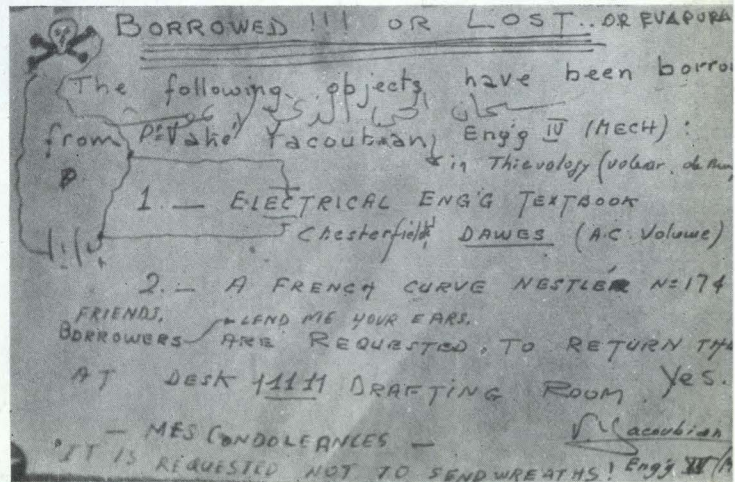 BORROWED !!! OR LOST.. OR EVAPORA
The following objects have been borro
from Vahe' Yacoubian, Eng'g IV (MECH) :
in Thievology (voleur.
1. — ELECTRICAL ENG'G TEXTBOOK
Chesterfield DAWES (A.C. Volume)
2. — A FRENCH CURVE NESTLER No 174
FRIENDS, LEND ME YOUR EARS.
BORROWERS ARE REQUESTED TO RETURN TH
AT DESK 11 DRAFTING ROOM. Yes.
— MES CONDOLEANCES — VYacoubian
"IT IS REQUESTED NOT TO SEND WREATHS! Eng'g IV/M